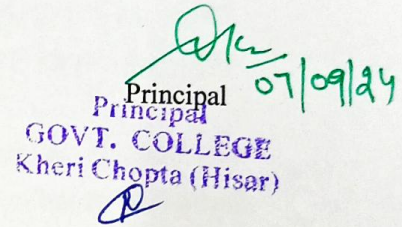 07/09/24
Principal
Principal
GOVT. COLLEGE
Kheri Chopta (Hisar)